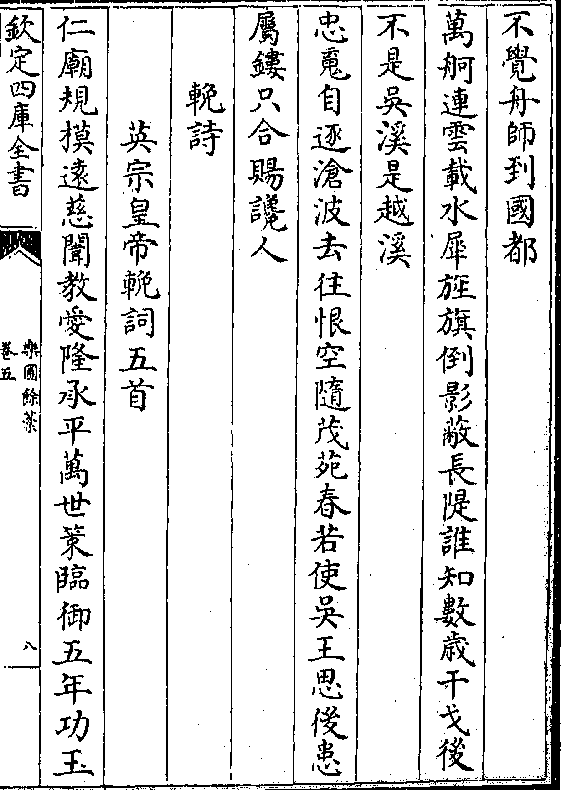 不覺舟師到國都
萬舸連雲載水犀旌旗倒影蔽長隄誰知數歲干戈後
不是吳溪是越溪
忠䰟自逐滄波去往恨空隨茂苑春若使吳王思後患
屬鏤只合賜讒人
輓詩
英宗皇帝輓詞五首
仁廟規摸遠慈闈教愛隆承平萬世業臨御五年功玉
欽定四庫全書
樂圃餘藁
卷五
八